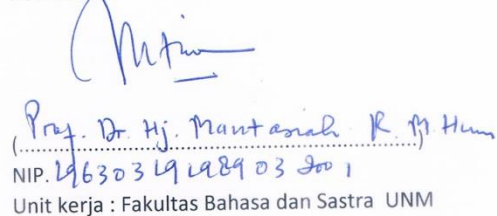 (Prof. Dr. Hj. Mantasiah R. M. Hum)
NIP. 196303191989032001
Unit kerja : Fakultas Bahasa dan Sastra UNM